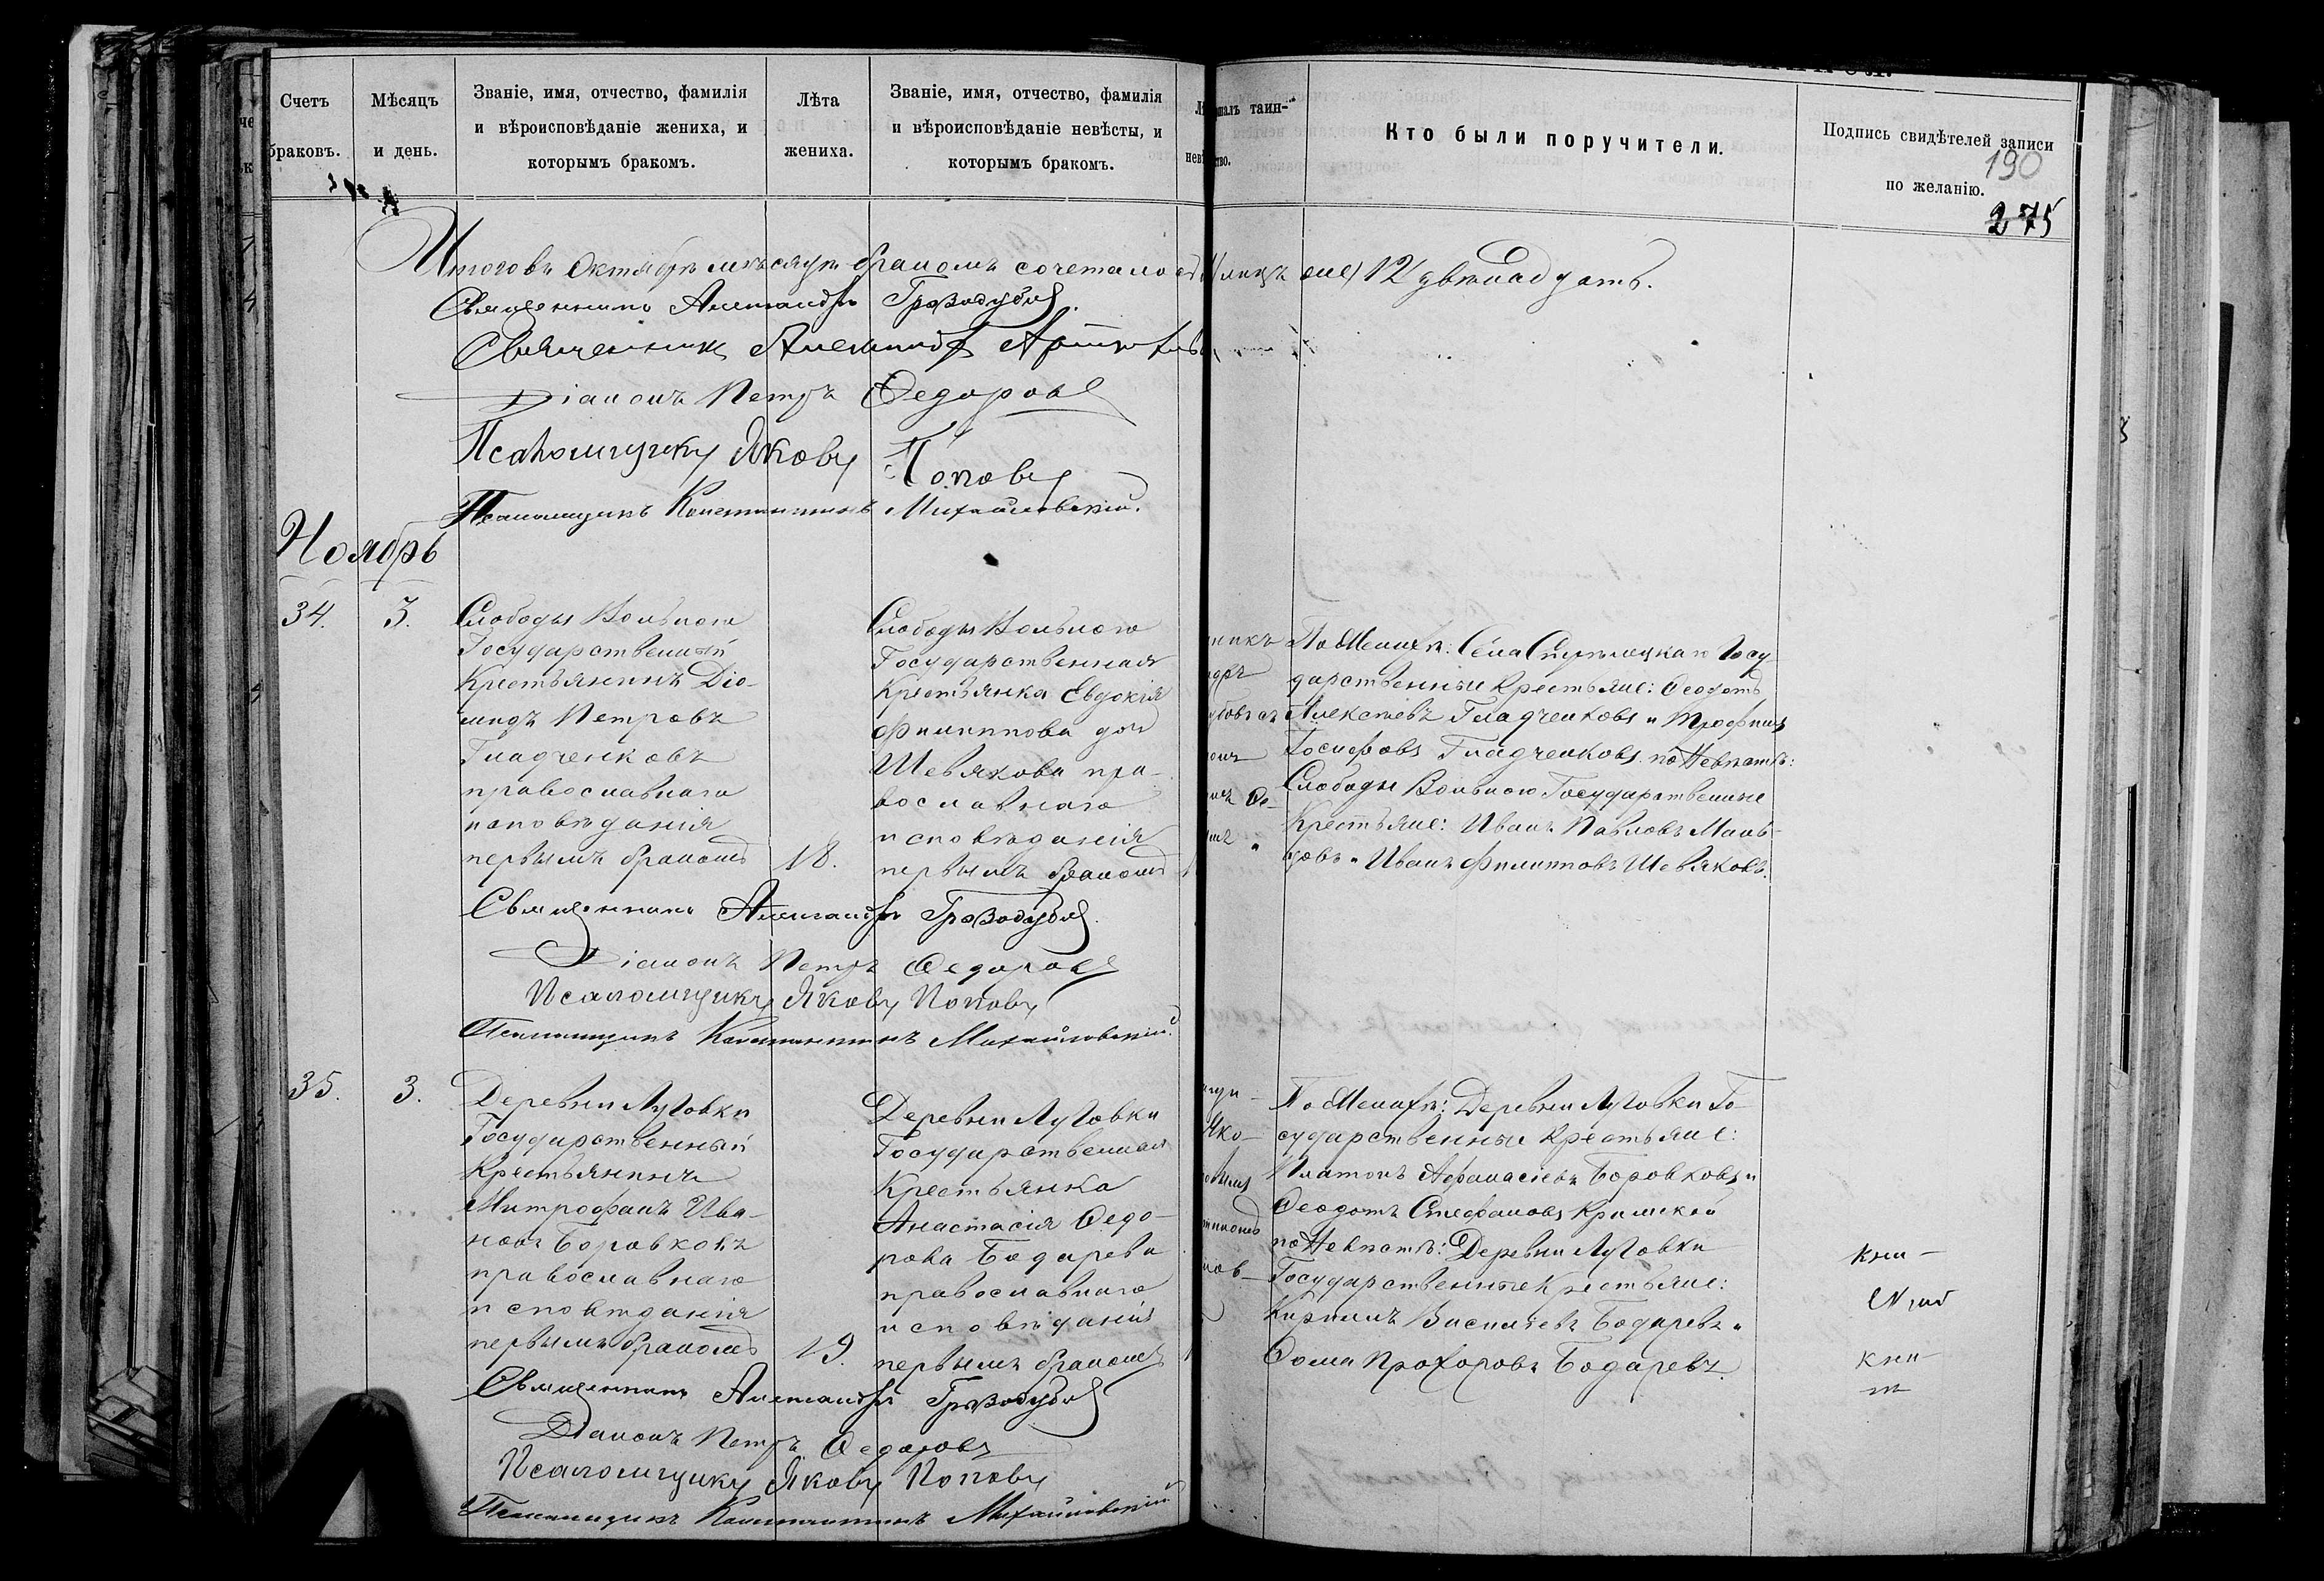 Счетъ
браковъ.
Мѣсяцъ
и день.
Званіе, имя, отчество, фамилія
и вѣроисповѣданіе жениха, и
которымъ бракомъ.
Лѣта
жениха.
Званіе, имя, отчество, фамилія
и вѣроисповѣданіе невѣсты, и
которымъ бракомъ.
таин-
Кто были поручители.
Подпись свидѣтелей записи
по желанію.
190
275
Итого въ Октябрѣ мѣсяцѣ бракомъ сочеталось
12 двѣнадцать.
Священникъ Александръ Грозодубовъ
Священникъ Александръ
Діаконъ Петръ Федоровъ
Псаломщикъ Яковъ Поповъ
Псаломщикъ Константинъ Михайловскій.
Ноябрь
34.
3.
Слободы Вольного
Государственный
Крестьянинъ Діо-
мидъ Петровъ
Гладченковъ
православнаго
исповѣданія
первымъ бракомъ
18.
Слободы Вольного
Государственная
Крестьянка Евдокія
Филиппова доч
Шевякова пра-
вославнаго
исповѣданія
первымъ бракомъ
По Женихѣ: Села Госу-
дарственные Крестьяне: Феодотъ
Алексѣевъ Гладченковъ и Трофимъ
Іосифовъ Гладченковъ. по Невѣстѣ:
Слободы Вольного Государственные
Крестьяне: Иванъ Павловъ Маль-
цовъ и Иванъ Филипповъ Шевяковъ.
Священникъ Александръ Грозодубовъ
Діаконъ Петръ Федоровъ
Псаломщикъ Яковъ Поповъ
Псаломщикъ Константинъ Михайловскій.
35.
3.
Деревни Луговки
Государственный
Крестьянинъ
Митрофанъ Ива-
новъ Боровковъ
православнаго
исповѣданія
первымъ бракомъ
19.
Деревни Луговки
Государственная
Крестьянка
Анастасія Федо-
рова Бодарева
православнаго
исповѣданія
первымъ бракомъ
По Женихѣ: Деревни Луговки Го-
сударственные Крестьяне:
Платонъ Афанасіевъ Боровковъ и
Феодотъ Стефановъ
по Невѣстѣ: Деревни Луговки
Государственные Крестьяне:
Кириллъ Васильевъ Бодаревъ и
Фома Прохоровъ Бодаревъ.
Священникъ Александръ Грозодубовъ
Діаконъ Петръ Федоровъ
Псаломщикъ Яковъ Поповъ
Псаломщикъ Константинъ Михайловскій